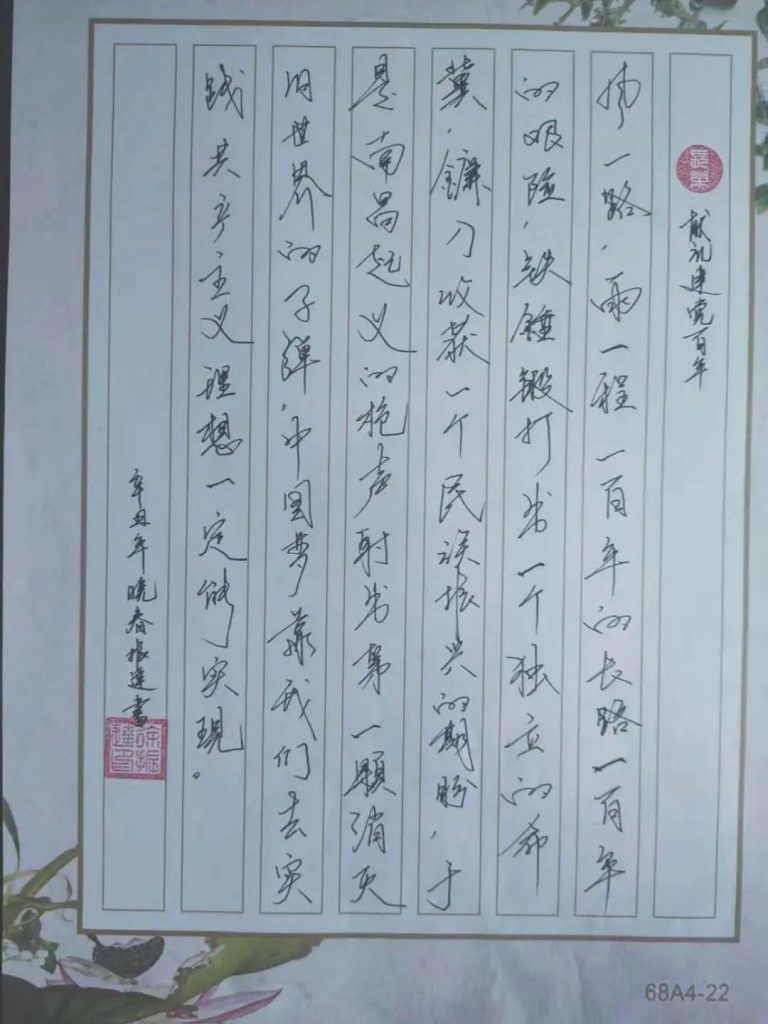 長樂
献礼建党百年
风一路，雨一程一百年的长路一百年
的艰险，铁锤锻打出一个独立的希
冀，镰刀收获一个民族振兴的期盼，于
是南昌起义的枪声射出第一颗消灭
旧世界的子弹，中国梦靠我们去实
践共产主义理想一定能实现。
辛丑年晚春振达書
徐振達印
68A4-22